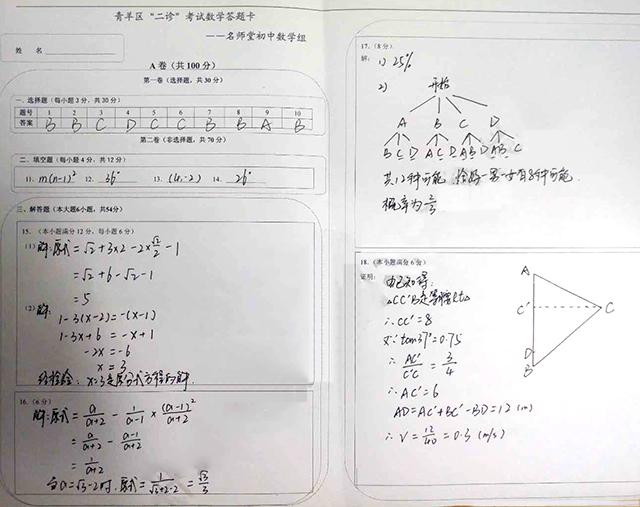 青羊区“二诊”考试数学答题卡
——名师堂初中数学组
姓 名
A 卷（共 100 分）
第一卷（选择题，共 30 分）
一、选择题（每小题 3 分，共 30 分）
题号 1 2 3 4 5 6 7 8 9 10
答案 B B C D C C B B A B
第二卷（非选择题，共 70 分）
二、填空题（每小题 4 分，共 12 分）
11. m(n-1)² 12. 36° 13. (4,-2) 14. 26°
三、解答题（本大题6小题，共54分）
15. （本小题满分 12 分，每小题 6 分）
(1) 解:原式 = √2 + 3×2 - 2×√2/2 - 1
= √2 + 6 - √2 - 1
= 5
(2) 解:
1-3(x-2) = -(x-1)
1-3x+6 = -x+1
-2x = -6
x = 3
经检验: x=3是原分式方程的解.
16. （6 分）
解:原式 = a/(a+2) - 1/(a-1) × (a-1)²/(a+2)
= a/(a+2) - (a-1)/(a+2)
= 1/(a+2)
当a=√3-2时, 原式 = 1/(√3+2-2) = √3/3
17. （8 分）
解: 1) 25%
2) 开始
A B C D
B C D A C D A B D A B C
共12种可能 恰好一男一女有8种可能.
概率为 2/3
18. （本小题满分 6 分）
证明: 由已知得:
△CC'B是等腰Rt△
∴ CC' = 8
又∵ tan37° = 0.75
∴ AC'/C'C = 3/4
∴ AC' = 6
AD = AC' + BC' - BD = 12 (m)
∴ V = 12/40 = 0.3 (m/s)
A
C' C
D
B